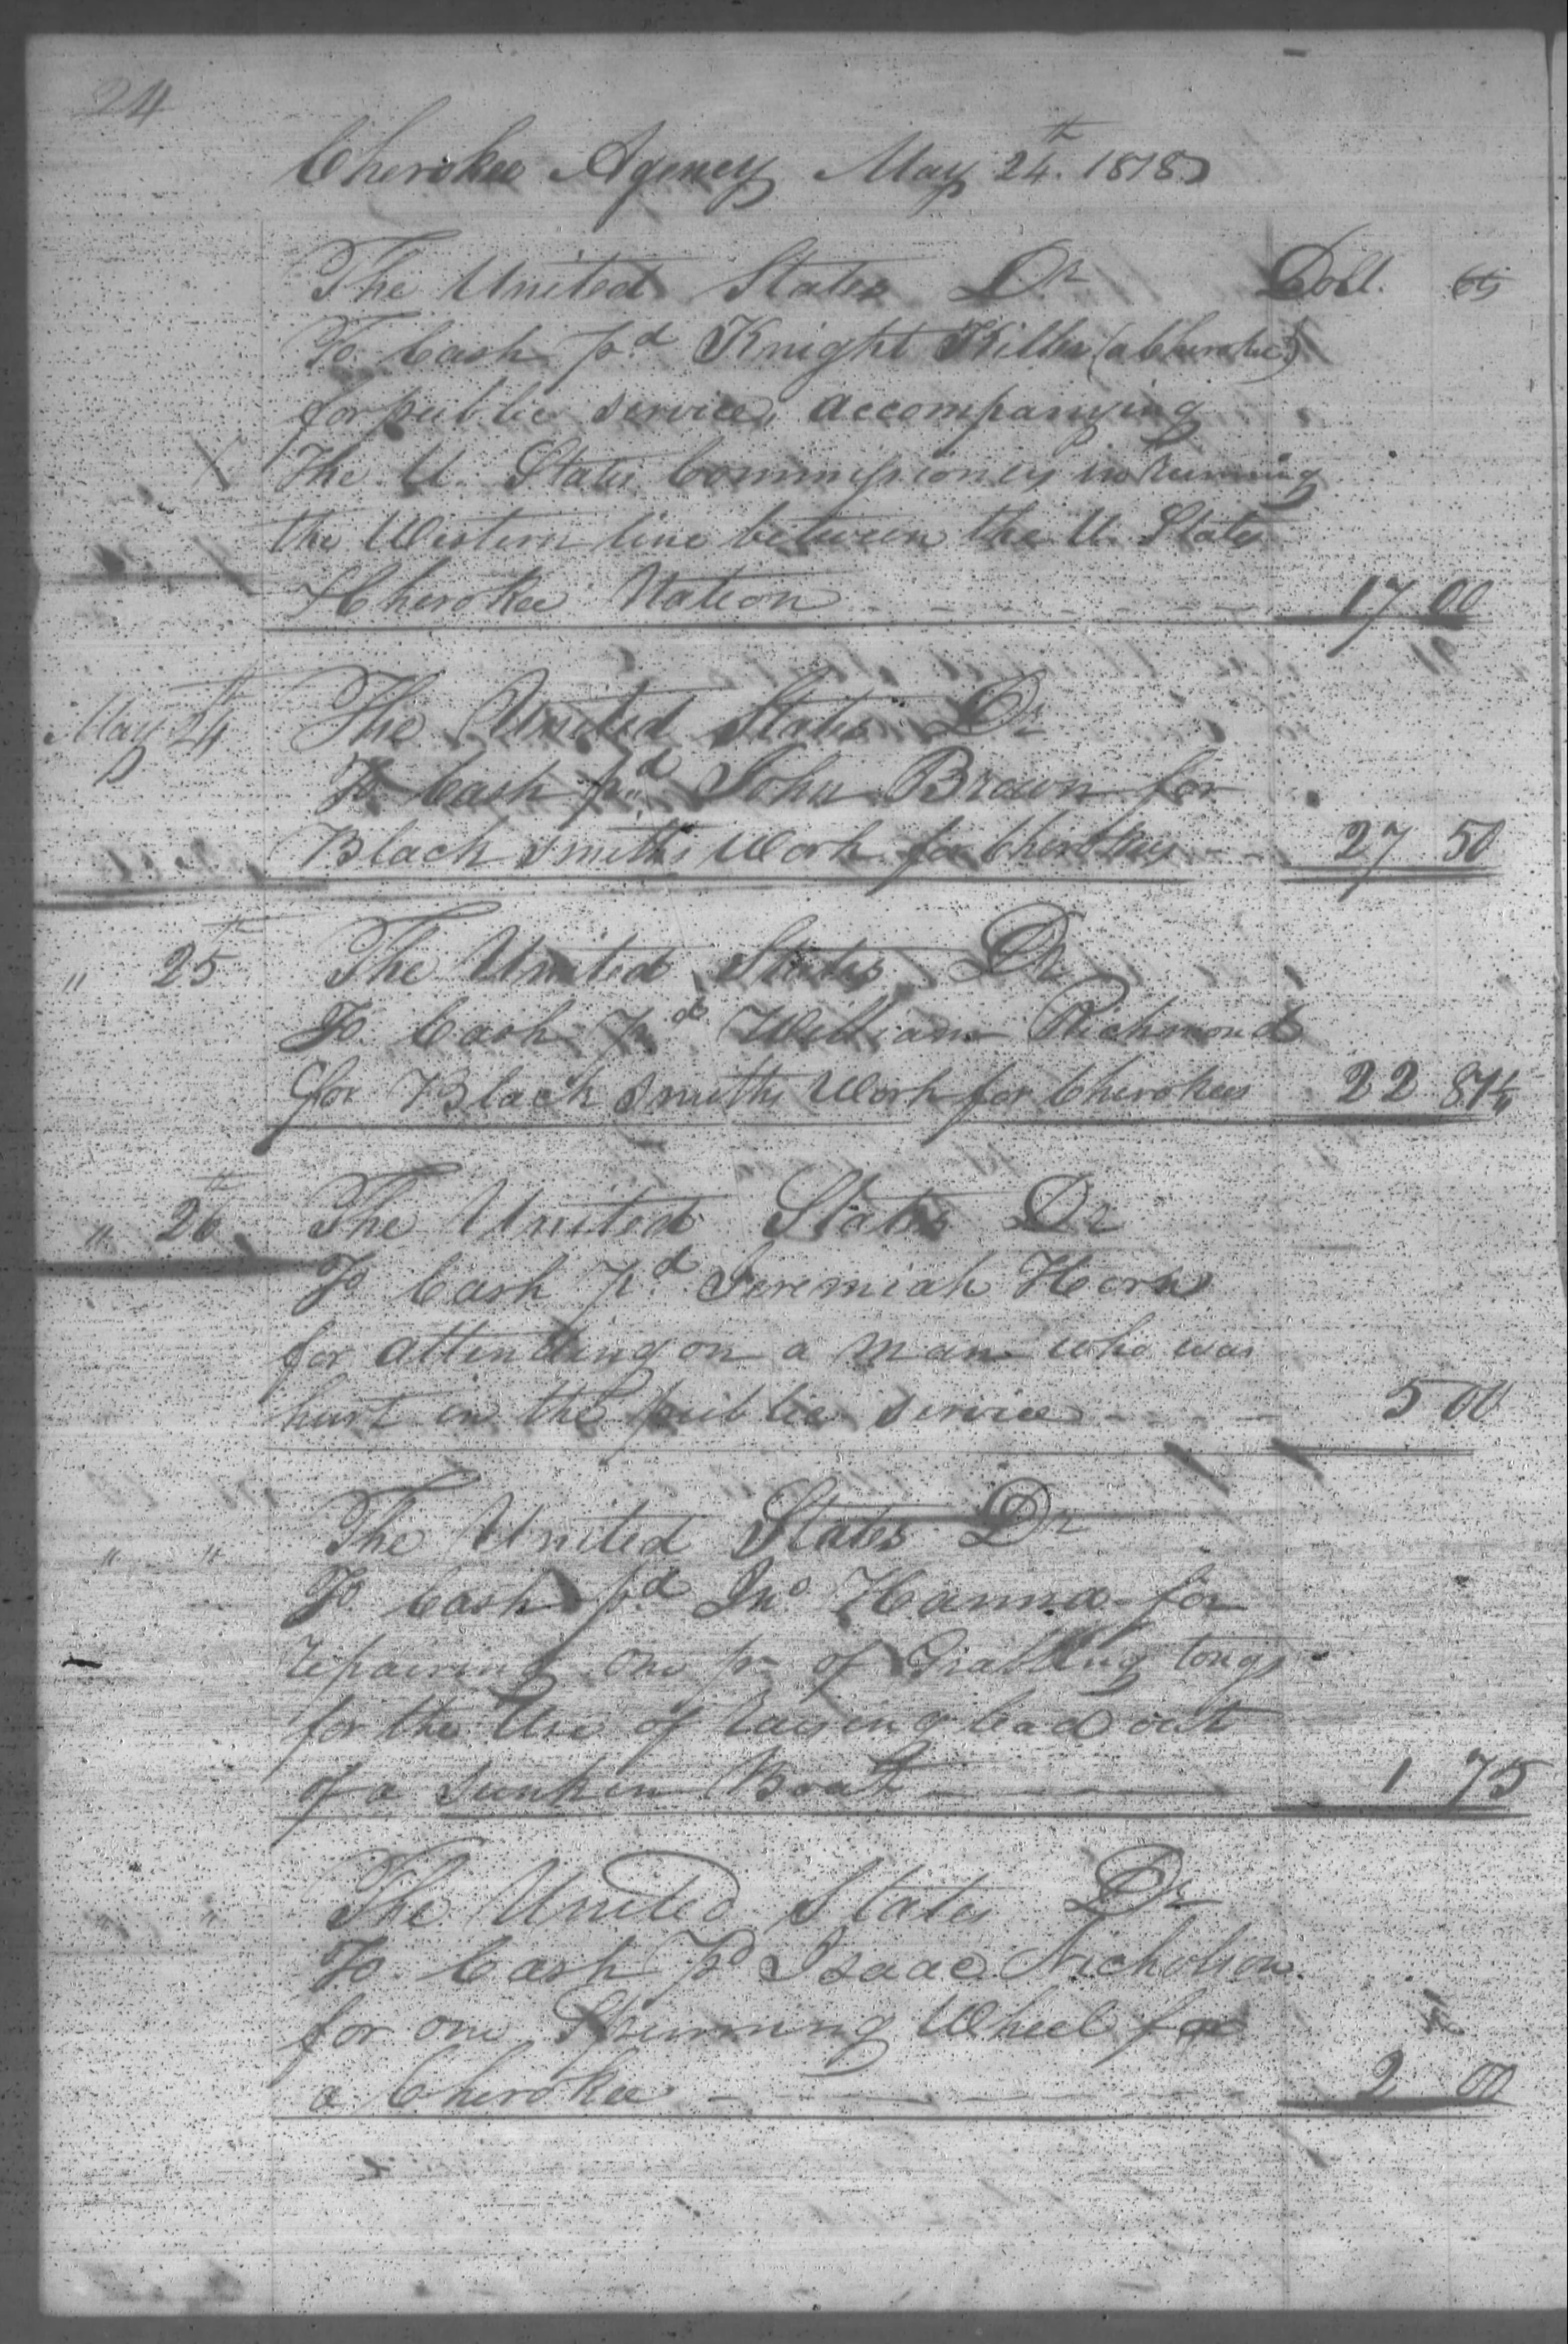 24
Cherokee Agency May 24th 1818
The United States Dr Doll. Cts
To Cash pd Knight Killer (a Cherokee)
for public services accompanying
The U. States Commissioners in running
the Western line between the U. States
& Cherokee Nation 17 00
May 24th The United States Dr
To Cash pd John Brown for
Black Smiths Work for Cherokees 27 50
" 25th The United States Dr
To Cash pd William Richmond
for Black Smiths Work for Cherokees 22 87½
" 26th The United States Dr
To Cash pd Jeremiah Horn
for attending on a man who was
hurt in the public service 5 00
" " The United States Dr
To Cash pd Jno Hanna for
repairing one pr of Grabling tongs
for the Use of raising lead out
of a Sunken Boat 1 75
" " The United States Dr
To Cash pd Isaac Nicholson
for one Spinning Wheel for
a Cherokee 2 00